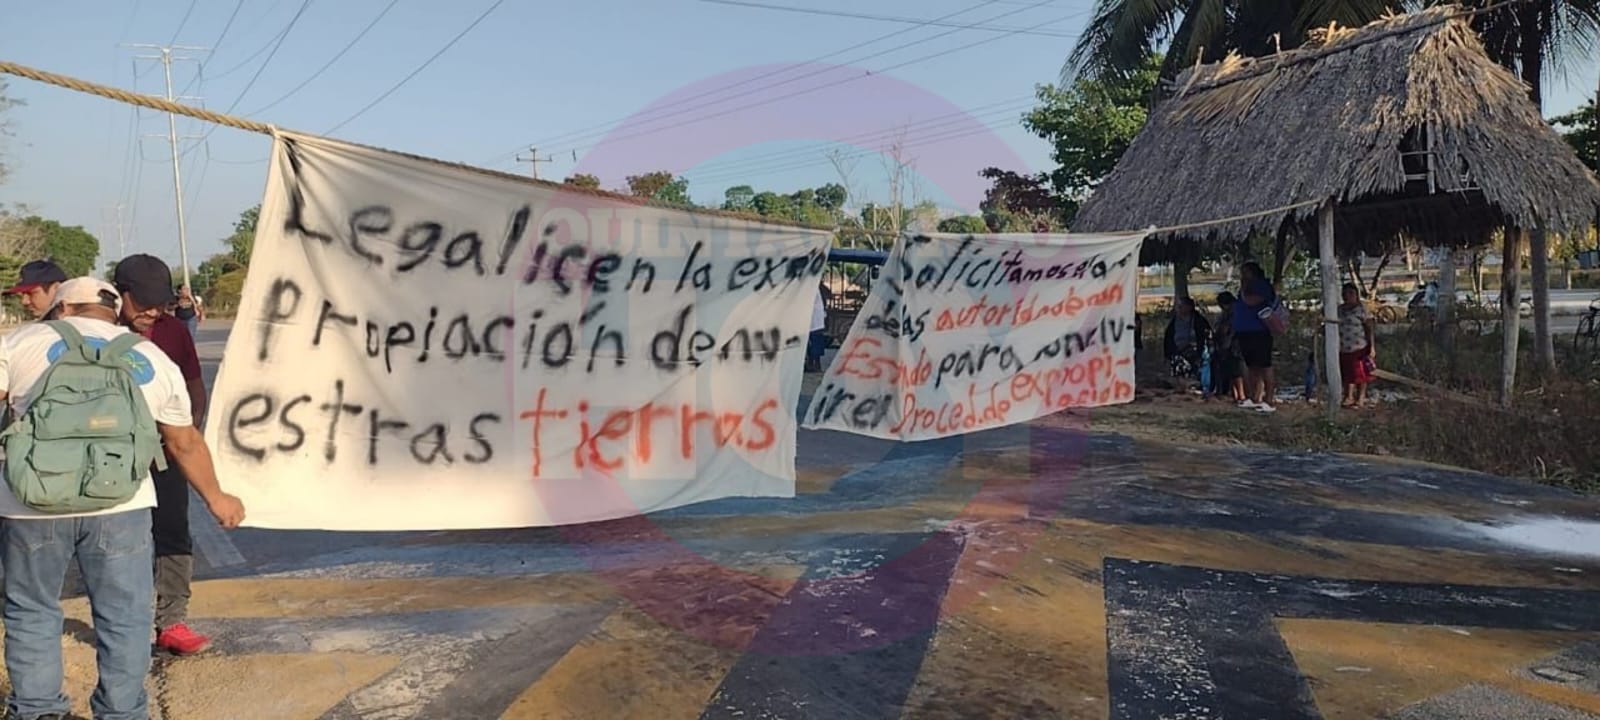 Legalicen la expro
propiación de nu-
estras tierras
Solicitamos a las
de las autoridades
Estado para conclu-
ir el Proced. de expropi-
ación
QUINTANA